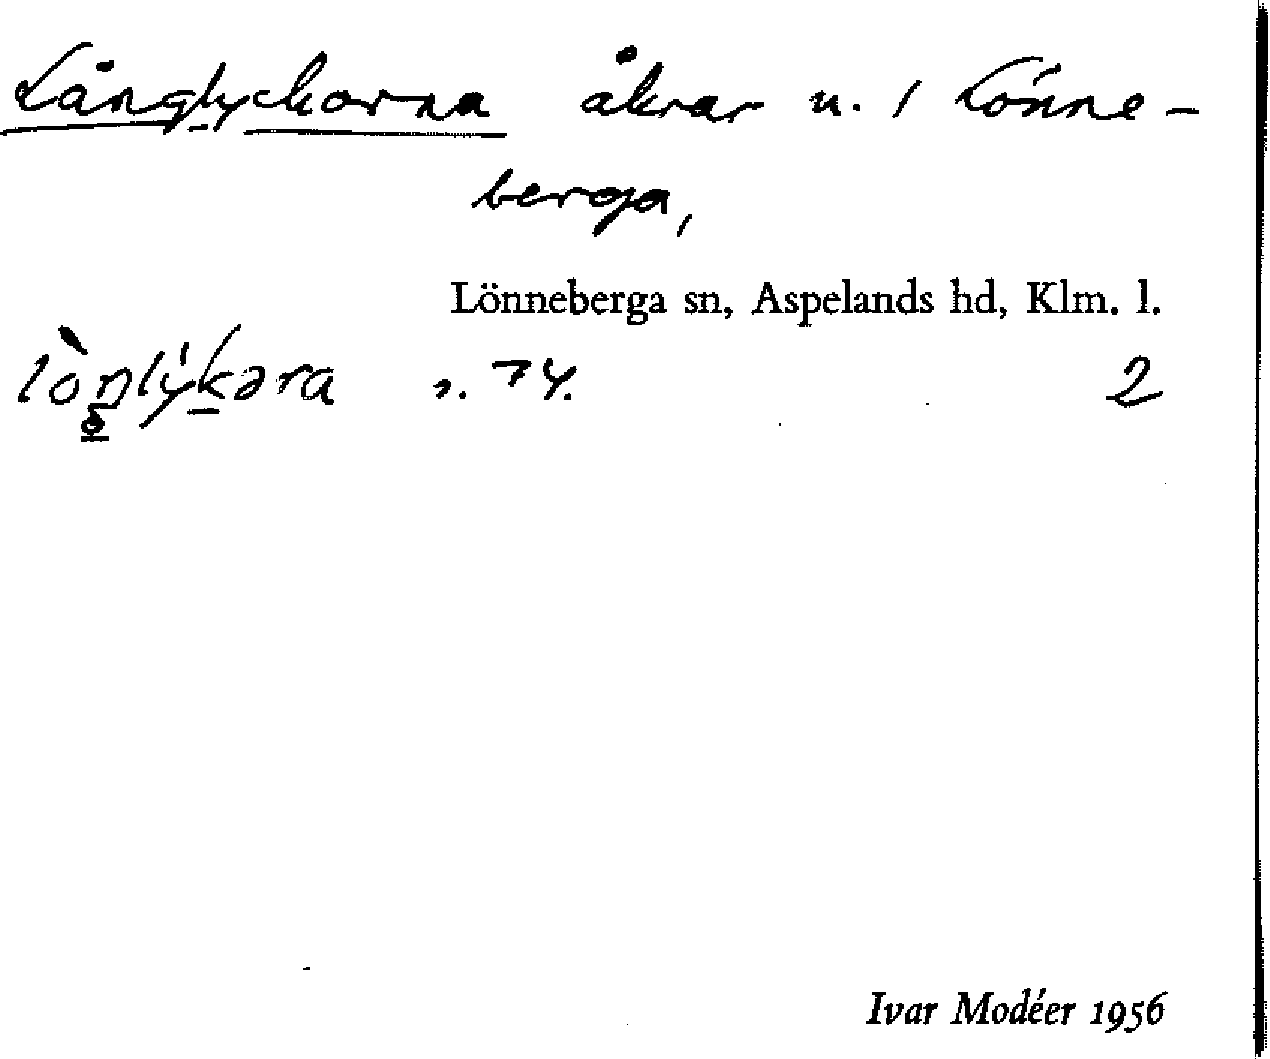 Långlyckorna åkrar u. / Lönne-
berga,
Lönneberga sn, Aspelands hd, Klm. l.
s. 74. 2
Ivar Modéer 1956